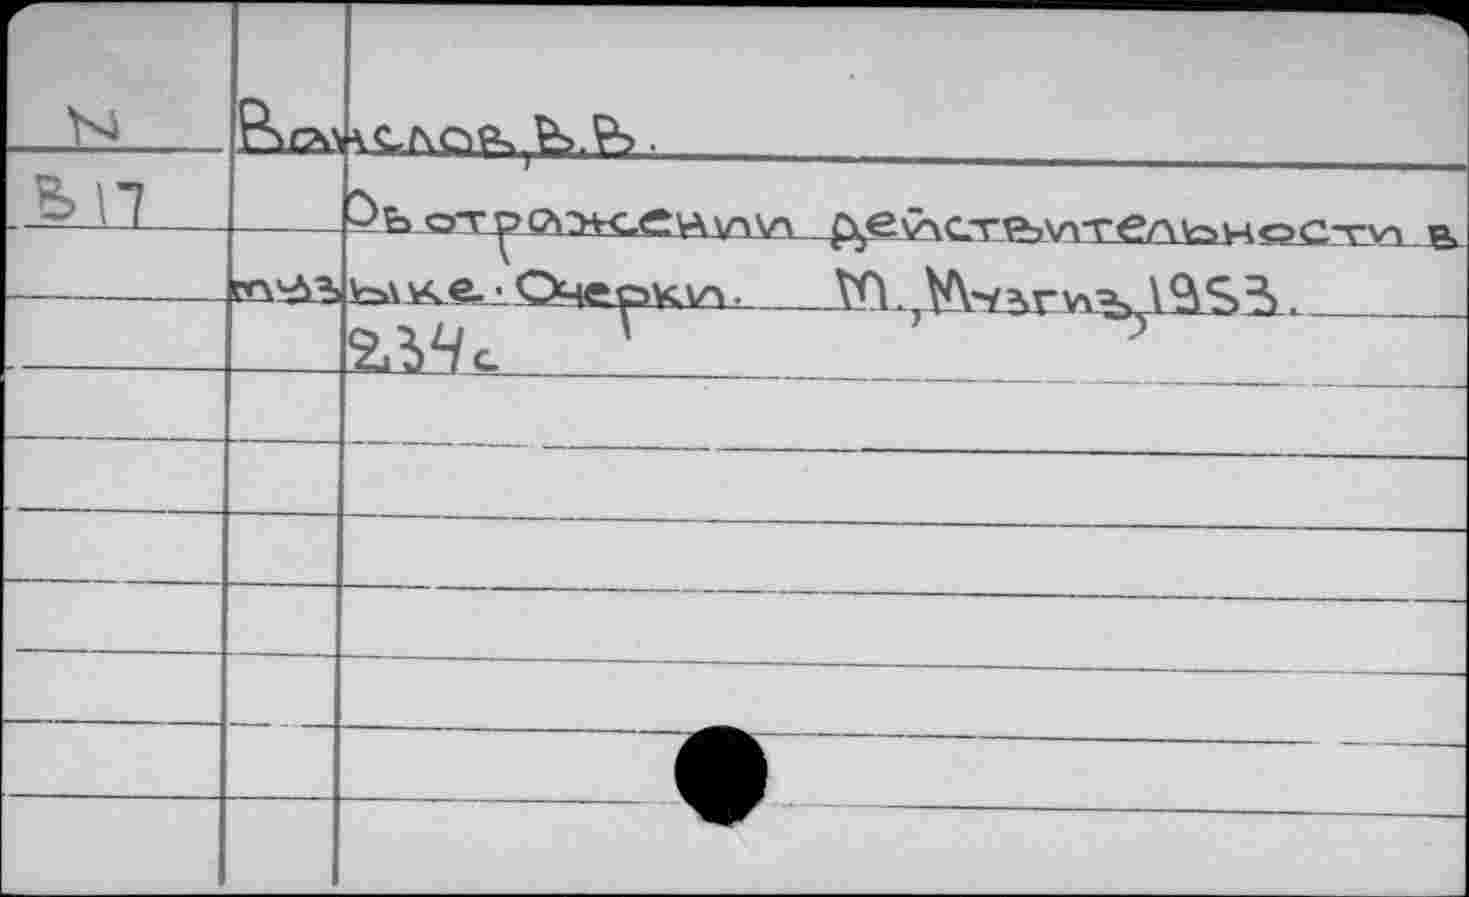 И
Ванслов, В.В.
В17
Об отражении действительности в
музыке. Очерки. М., Музгиз, 1953.
234с